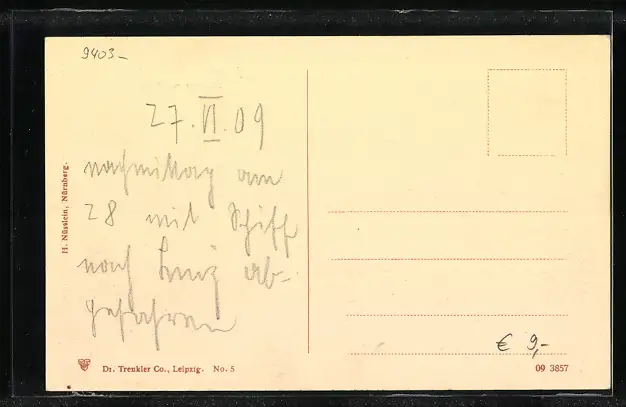 9403-
27. VI. 09
nachmittag am
28 mit Schiff
nach Linz ab-
gefahren
H. Nüsslein, Nürnberg.
Dr. Trenkler Co., Leipzig. No. 5
€ 9,-
09 3857